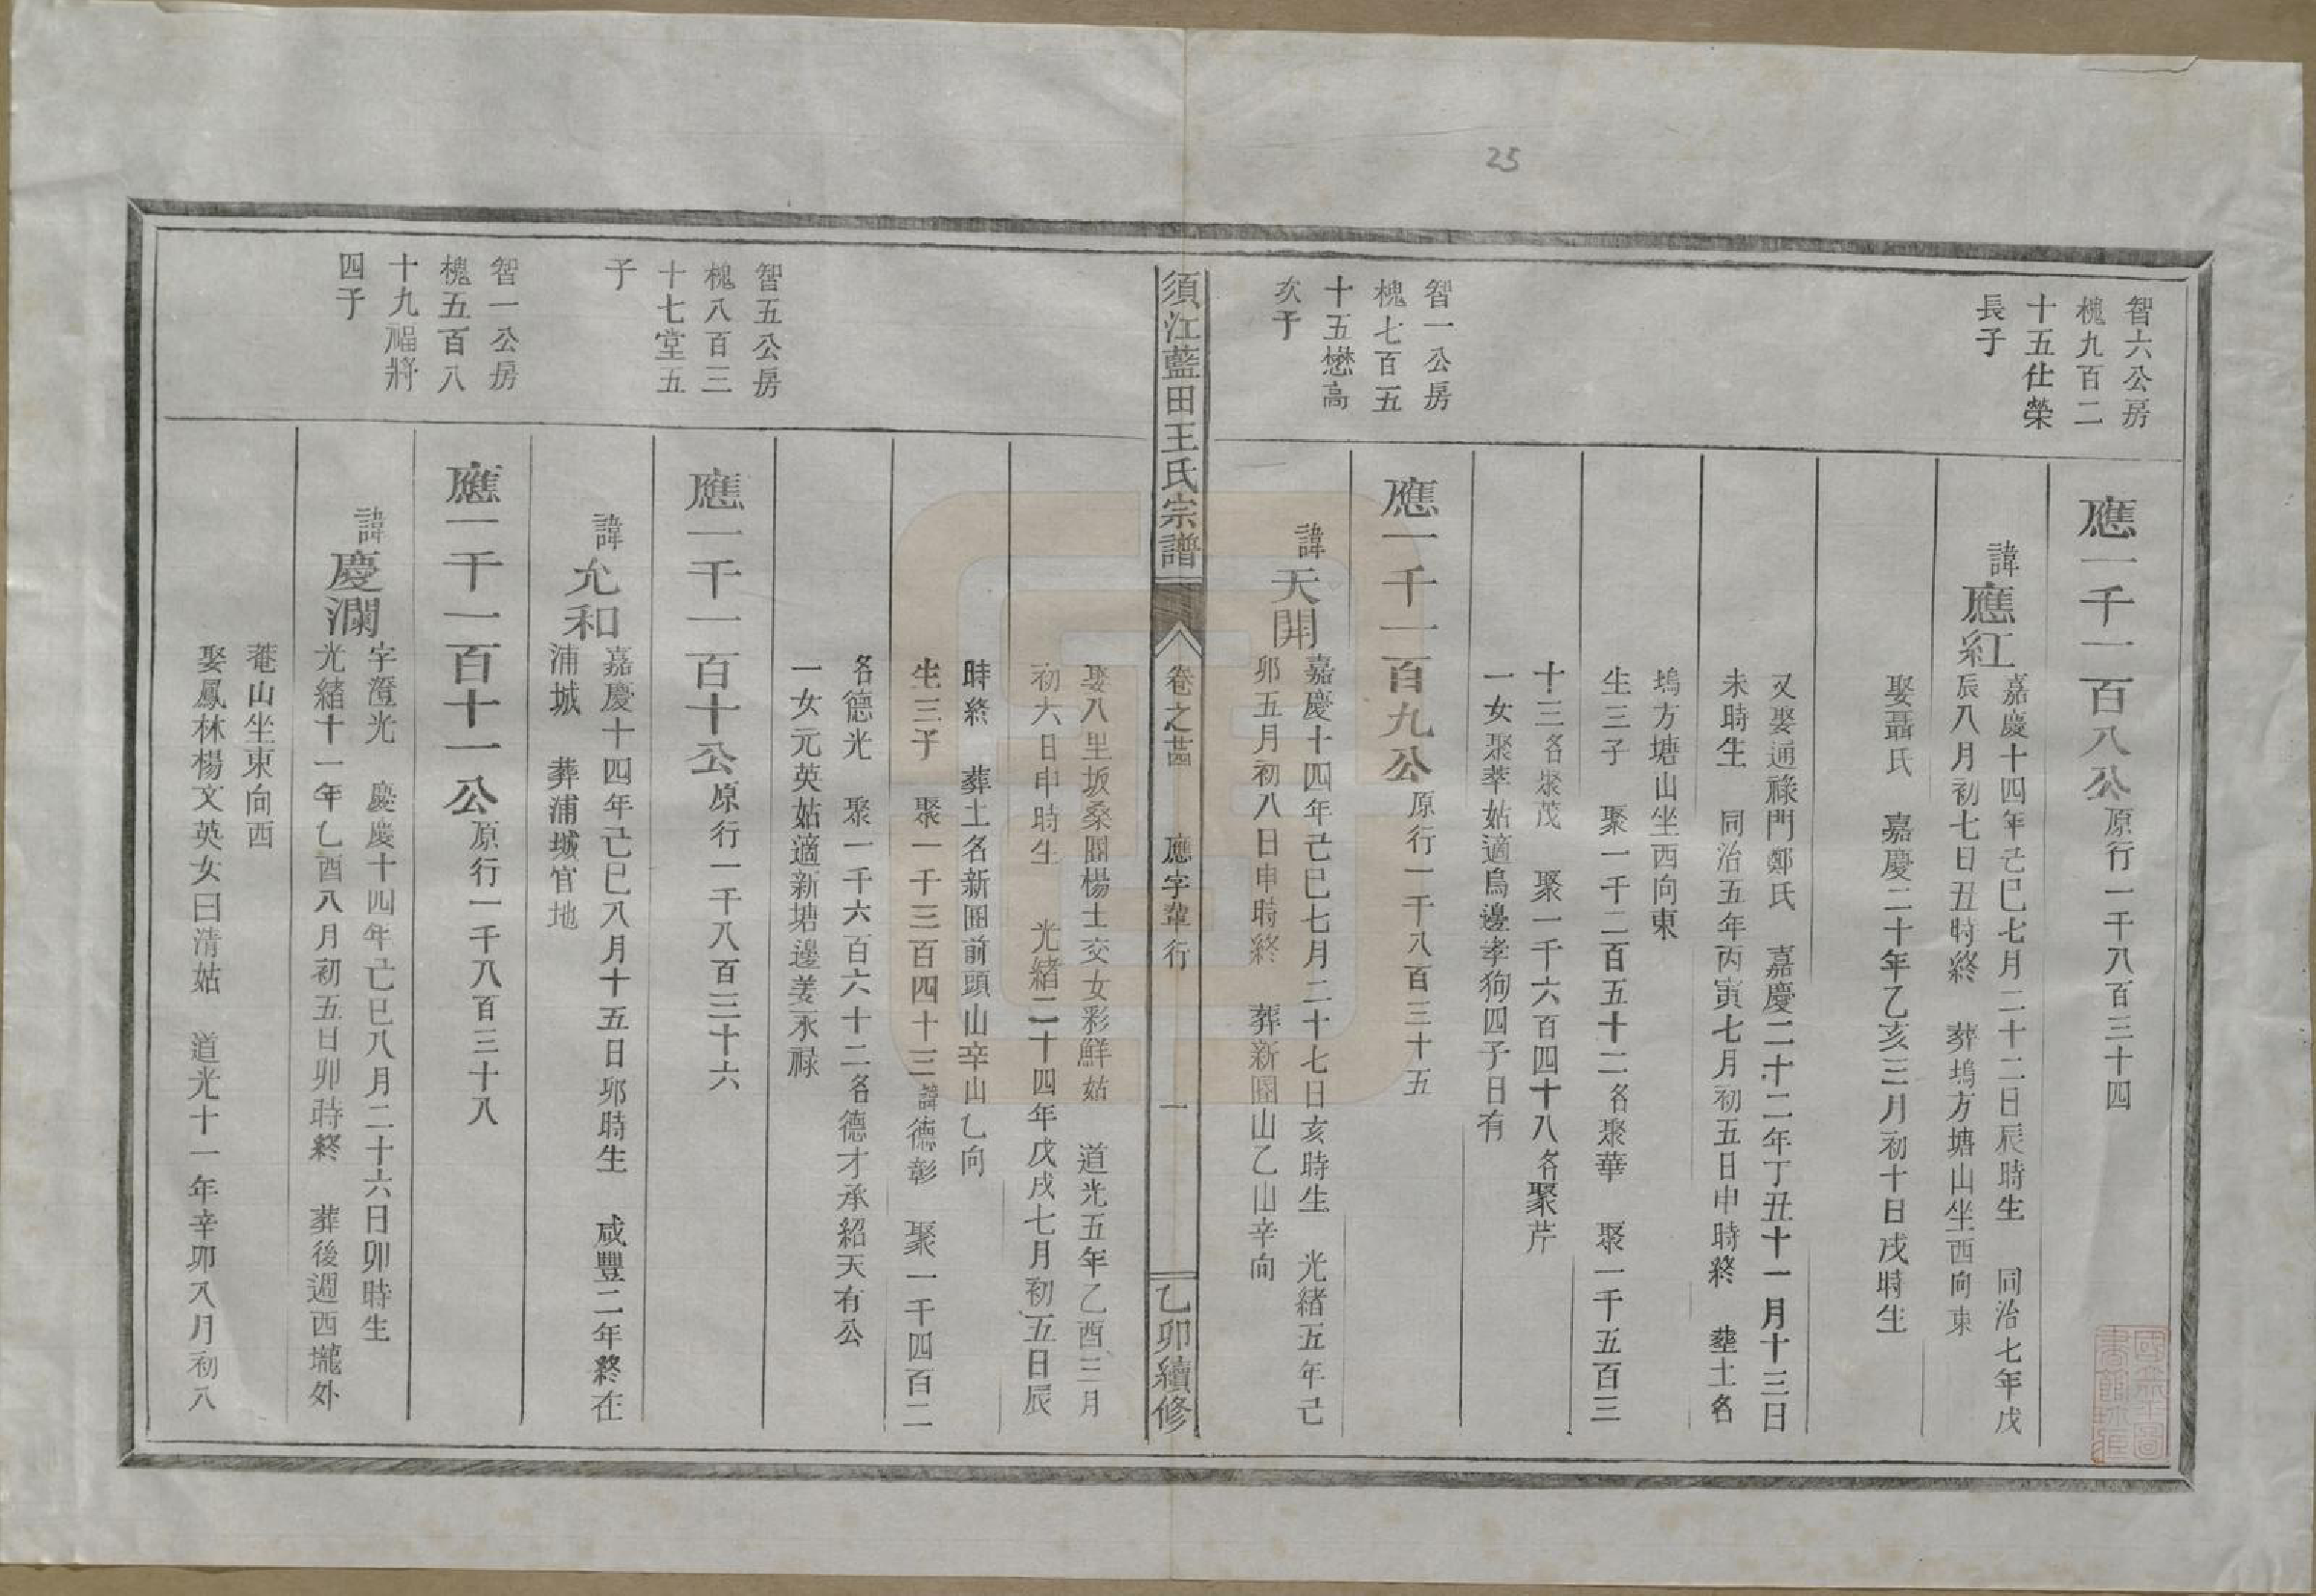 25
智六公房
槐九百二
十五仕榮
長子
應一千一百八公原行一千八百三十四
諱應紅
嘉慶十四年己巳七月二十二日辰時生 同治七年戊
辰八月初七日丑時終 葬塢方塘山坐西向東
娶聶氏 嘉慶二十年乙亥三月初十日戌時生
又娶通祿門鄭氏 嘉慶二十二年丁丑十一月十三日
未時生 同治五年丙寅七月初五日申時終 塟土名
塢方塘山坐西向東
生三子 聚一千二百五十二名聚華 聚一千五百三
十三名聚茂 聚一千六百四十八名聚芹
一女聚萃姑適烏邊孝狗四子日有
智一公房
槐七百五
十五懋高
次子
應一千一百九公原行一千八百三十五
諱天開
嘉慶十四年己巳七月二十七日亥時生 光緒五年己
卯五月初八日申時終 葬新圖山乙山辛向
須江藍田王氏宗譜
卷之 應字輩行
一
乙卯續修
娶八里坂桑園楊士交女彩鮮姑 道光五年乙酉三月
初六日申時生 光緒二十四年戊戌七月初五日辰
時終 葬土名新圖前頭山辛山乙向
生三子 聚一千三百四十三諱德彰 聚一千四百二
名德光 聚一千六百六十二名德才承紹天有公
一女元英姑適新塘邊姜永祿
智五公房
槐八百三
十七堂五
子
應一千一百十公原行一千八百三十六
諱允和
嘉慶十四年己巳八月十五日卯時生 咸豐二年終在
浦城 葬浦城官地
智一公房
槐五百八
十九福將
四子
應一千一百十一公原行一千八百三十八
諱慶瀾
字澄光 慶慶十四年己巳八月二十六日卯時生
光緒十一年乙酉八月初五日卯時終 葬後週西壠外
菴山坐東向西
娶鳳林楊文英女曰清姑 道光十一年辛卯八月初八